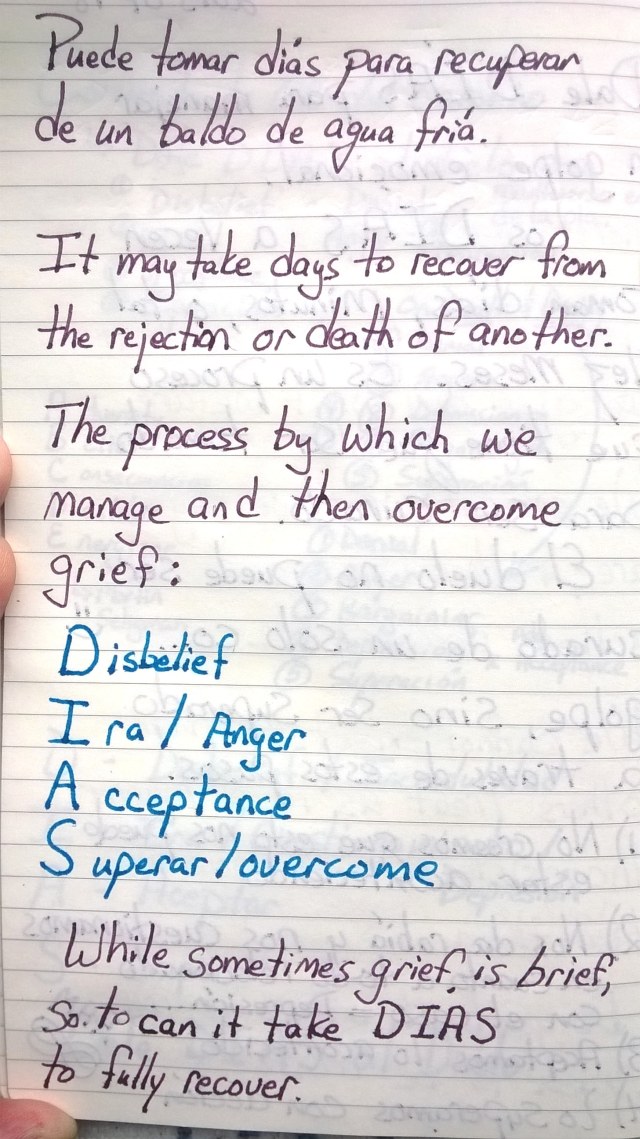 Puede tomar diás para recuperar
de un baldo de água friá.
It may take days to recover from
the rejection or death of another.
The process by which we
manage and then overcome
grief:
Disbelief
Ira / Anger
Acceptance
Superar/overcome
While sometimes grief is brief,
so to can it take DIAS
to fully recover.